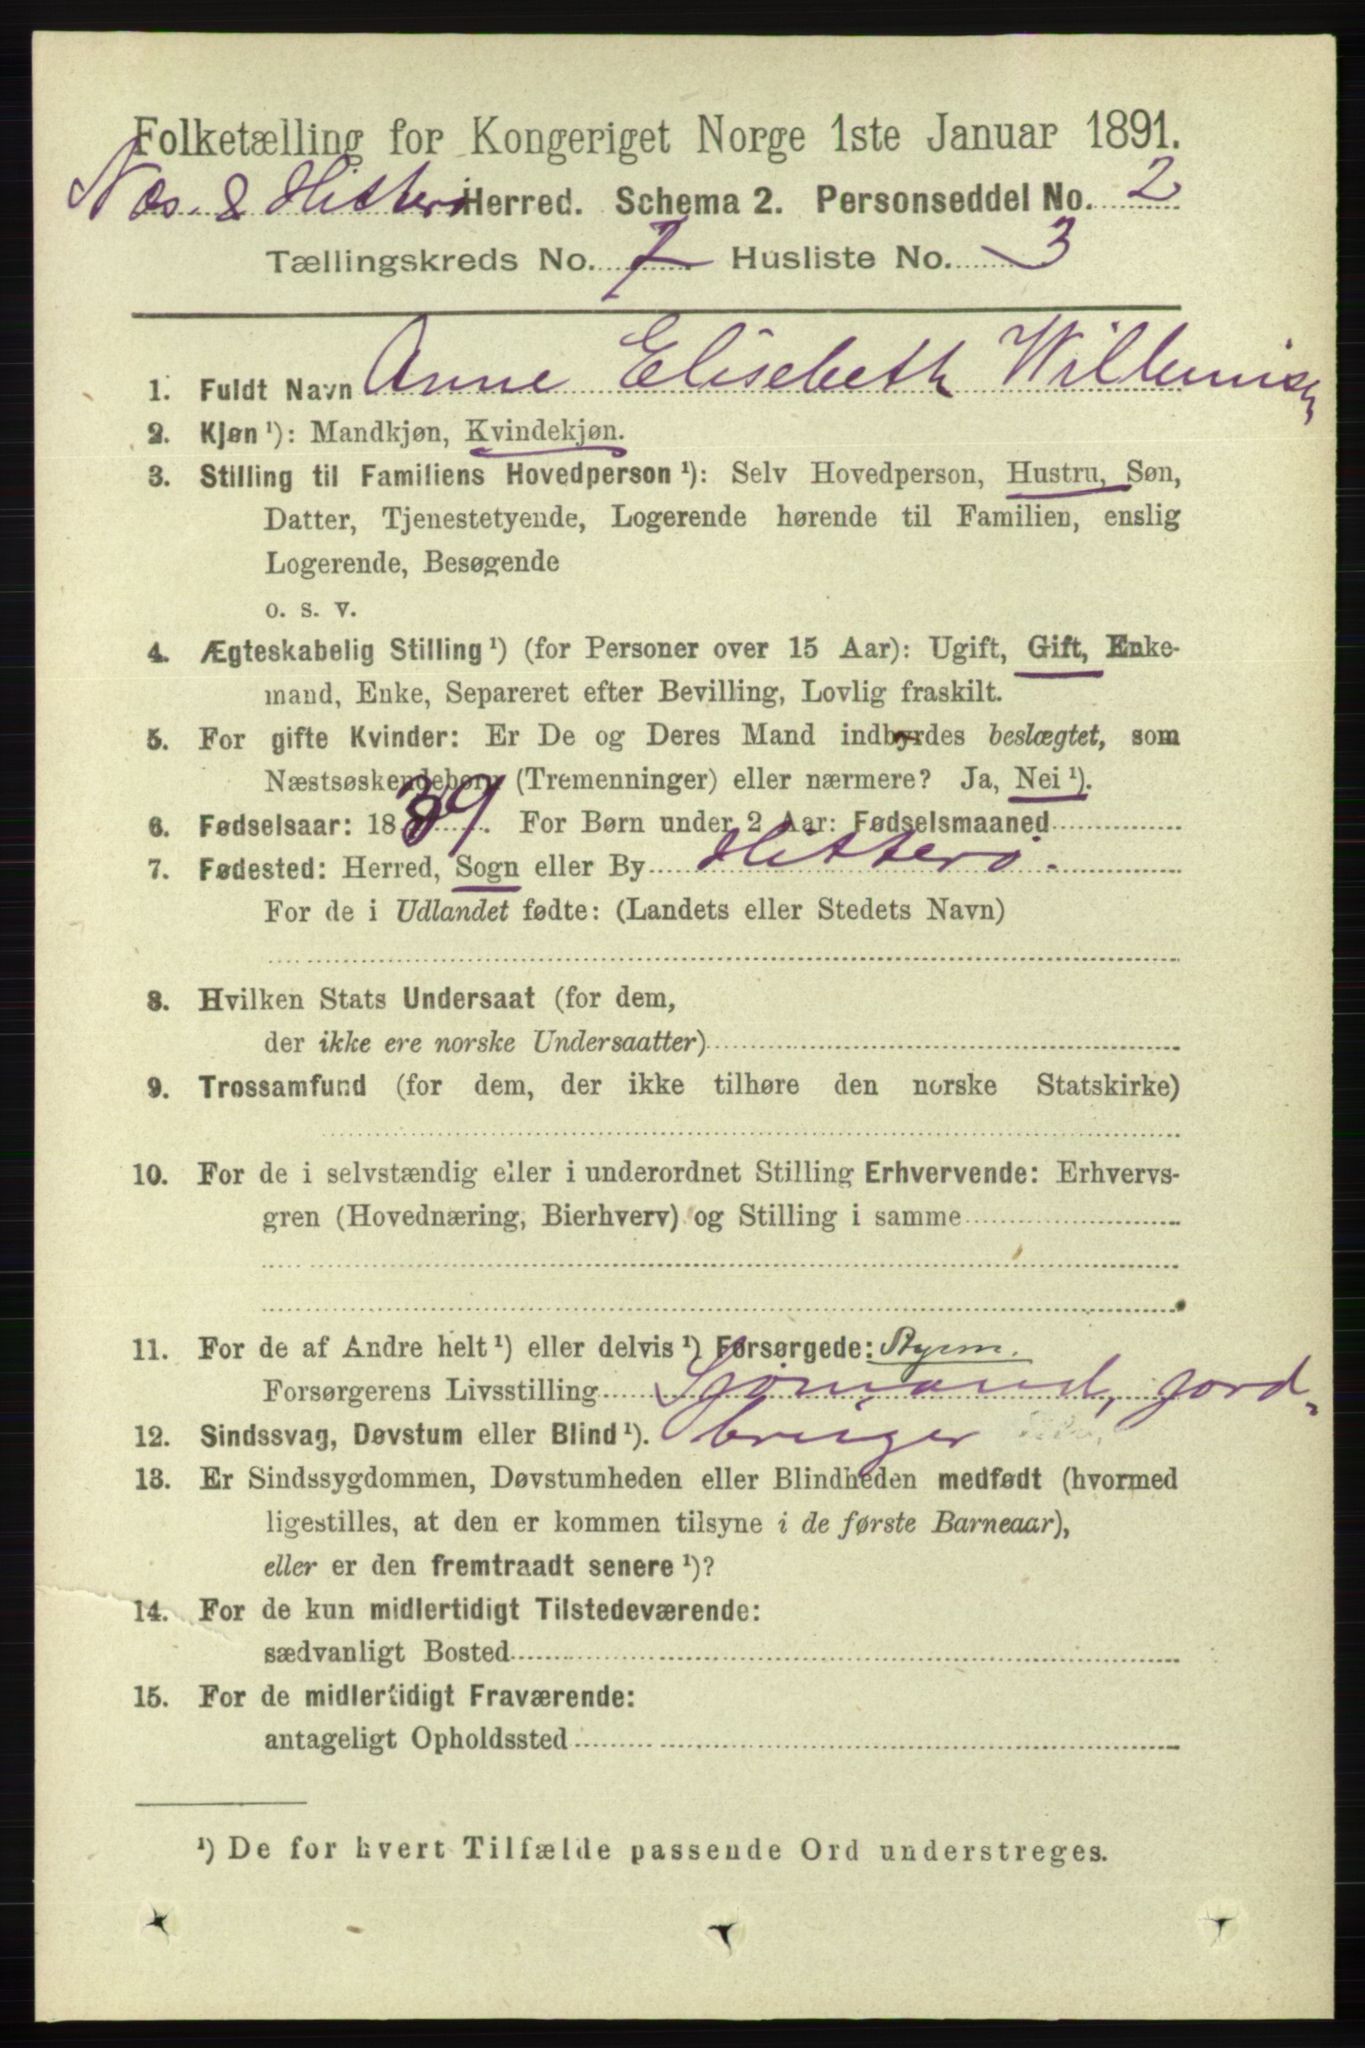 Folketælling for Kongeriget Norge 1ste Januar 1891.
Næs & Hitterø Herred. Schema 2. Personseddel No. 2
Tællingskreds No. 7 Husliste No. 3
1. Fuldt Navn Anne Elisebeth Willumsen
2. Kjøn ¹): Mandkjøn, Kvindekjøn.
3. Stilling til Familiens Hovedperson ¹): Selv Hovedperson, Hustru, Søn,
Datter, Tjenestetyende, Logerende hørende til Familien, enslig
Logerende, Besøgende
o. s. v.
4. Ægteskabelig Stilling ¹) (for Personer over 15 Aar): Ugift, Gift, Enke-
mand, Enke, Separeret efter Bevilling, Lovlig fraskilt.
5. For gifte Kvinder: Er De og Deres Mand indbyrdes beslægtet, som
Næstsøskendebørn (Tremenninger) eller nærmere? Ja, Nei ¹).
6. Fødselsaar: 1839. For Børn under 2 Aar: Fødselsmaaned
7. Fødested: Herred, Sogn eller By Hitterø.
For de i Udlandet fødte: (Landets eller Stedets Navn)
8. Hvilken Stats Undersaat (for dem,
der ikke ere norske Undersaatter)
9. Trossamfund (for dem, der ikke tilhøre den norske Statskirke)
10. For de i selvstændig eller i underordnet Stilling Erhvervende: Erhvervs-
gren (Hovednæring, Bierhverv) og Stilling i samme
11. For de af Andre helt ¹) eller delvis ¹) Forsørgede: Styrm.
Forsørgerens Livsstilling Sjømand, jord-
12. Sindssvag, Døvstum eller Blind ¹). bruger
13. Er Sindssygdommen, Døvstumheden eller Blindheden medfødt (hvormed
ligestilles, at den er kommen tilsyne i de første Barneaar),
eller er den fremtraadt senere ¹)?
14. For de kun midlertidigt Tilstedeværende:
sædvanligt Bosted
15. For de midlertidigt Fraværende:
antageligt Opholdssted
¹) De for hvert Tilfælde passende Ord understreges.